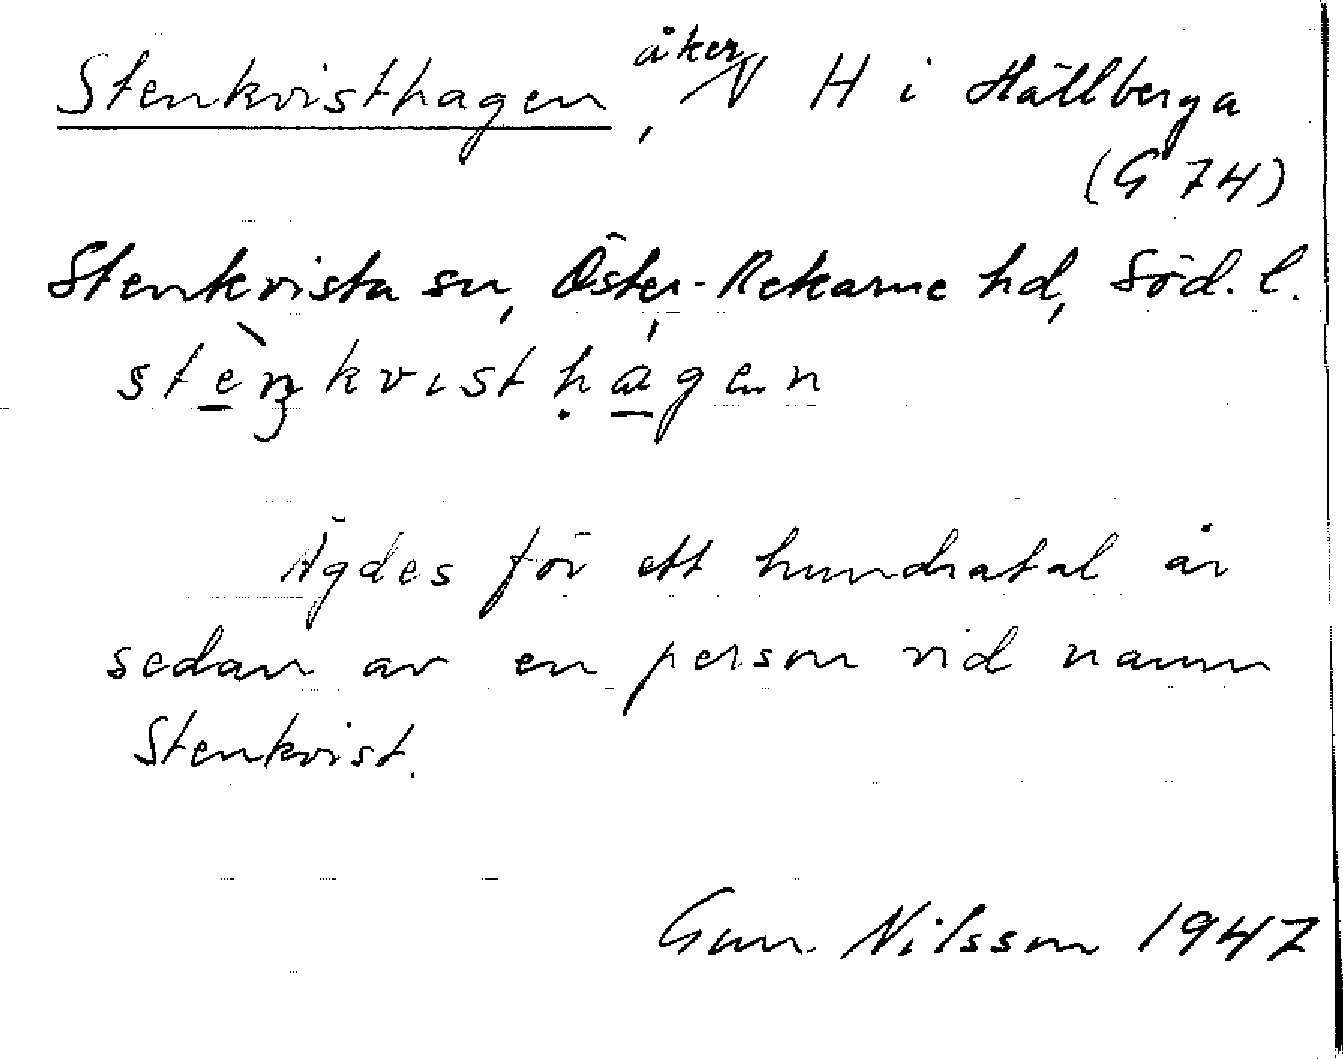 Stenkvisthagen, åker N H i Hällberga
(G 74)
Stenkvista sn, Öster-Rekarne hd, Söd. l.
stèŋkvisthágen
Ägdes för ett hundratal år
sedan av en person vid namn
Stenkvist.
Gun Nilsson 1947